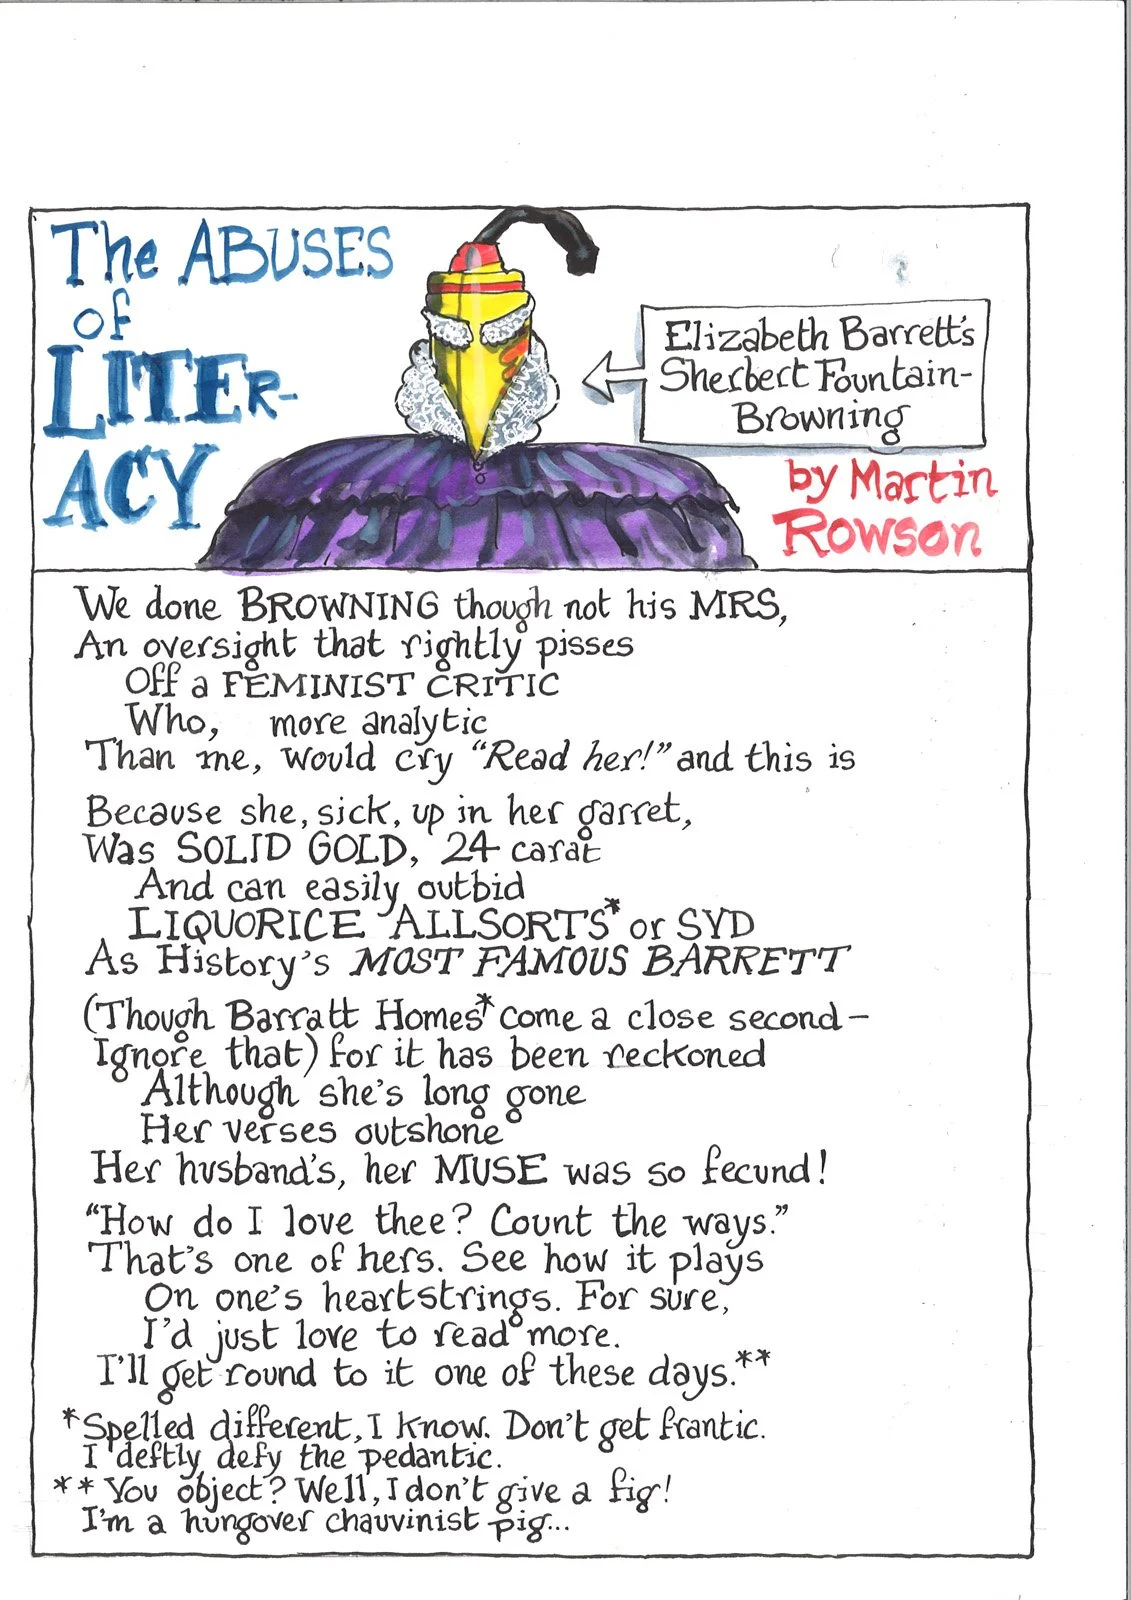 The ABUSES
of
LITER-
ACY
Elizabeth Barrett's
Sherbert Fountain-
Browning
by Martin
Rowson
We done BROWNING though not his MRS,
An oversight that rightly pisses
Off a FEMINIST CRITIC
Who, more analytic
Than me, would cry "Read her!" and this is
Because she, sick, up in her garret,
Was SOLID GOLD, 24 carat
And can easily outbid
LIQUORICE ALLSORTS* or SYD
As History's MOST FAMOUS BARRETT
(Though Barratt Homes* come a close second-
Ignore that) for it has been reckoned
Although she's long gone
Her verses outshone
Her husband's, her MUSE was so fecund!
"How do I love thee? Count the ways."
That's one of hers. See how it plays
On one's heartstrings. For sure,
I'd just love to read more.
I'll get round to it one of these days.**
*Spelled different, I know. Don't get frantic.
I deftly defy the pedantic.
**You object? Well, I don't give a fig!
I'm a hungover chauvinist pig...